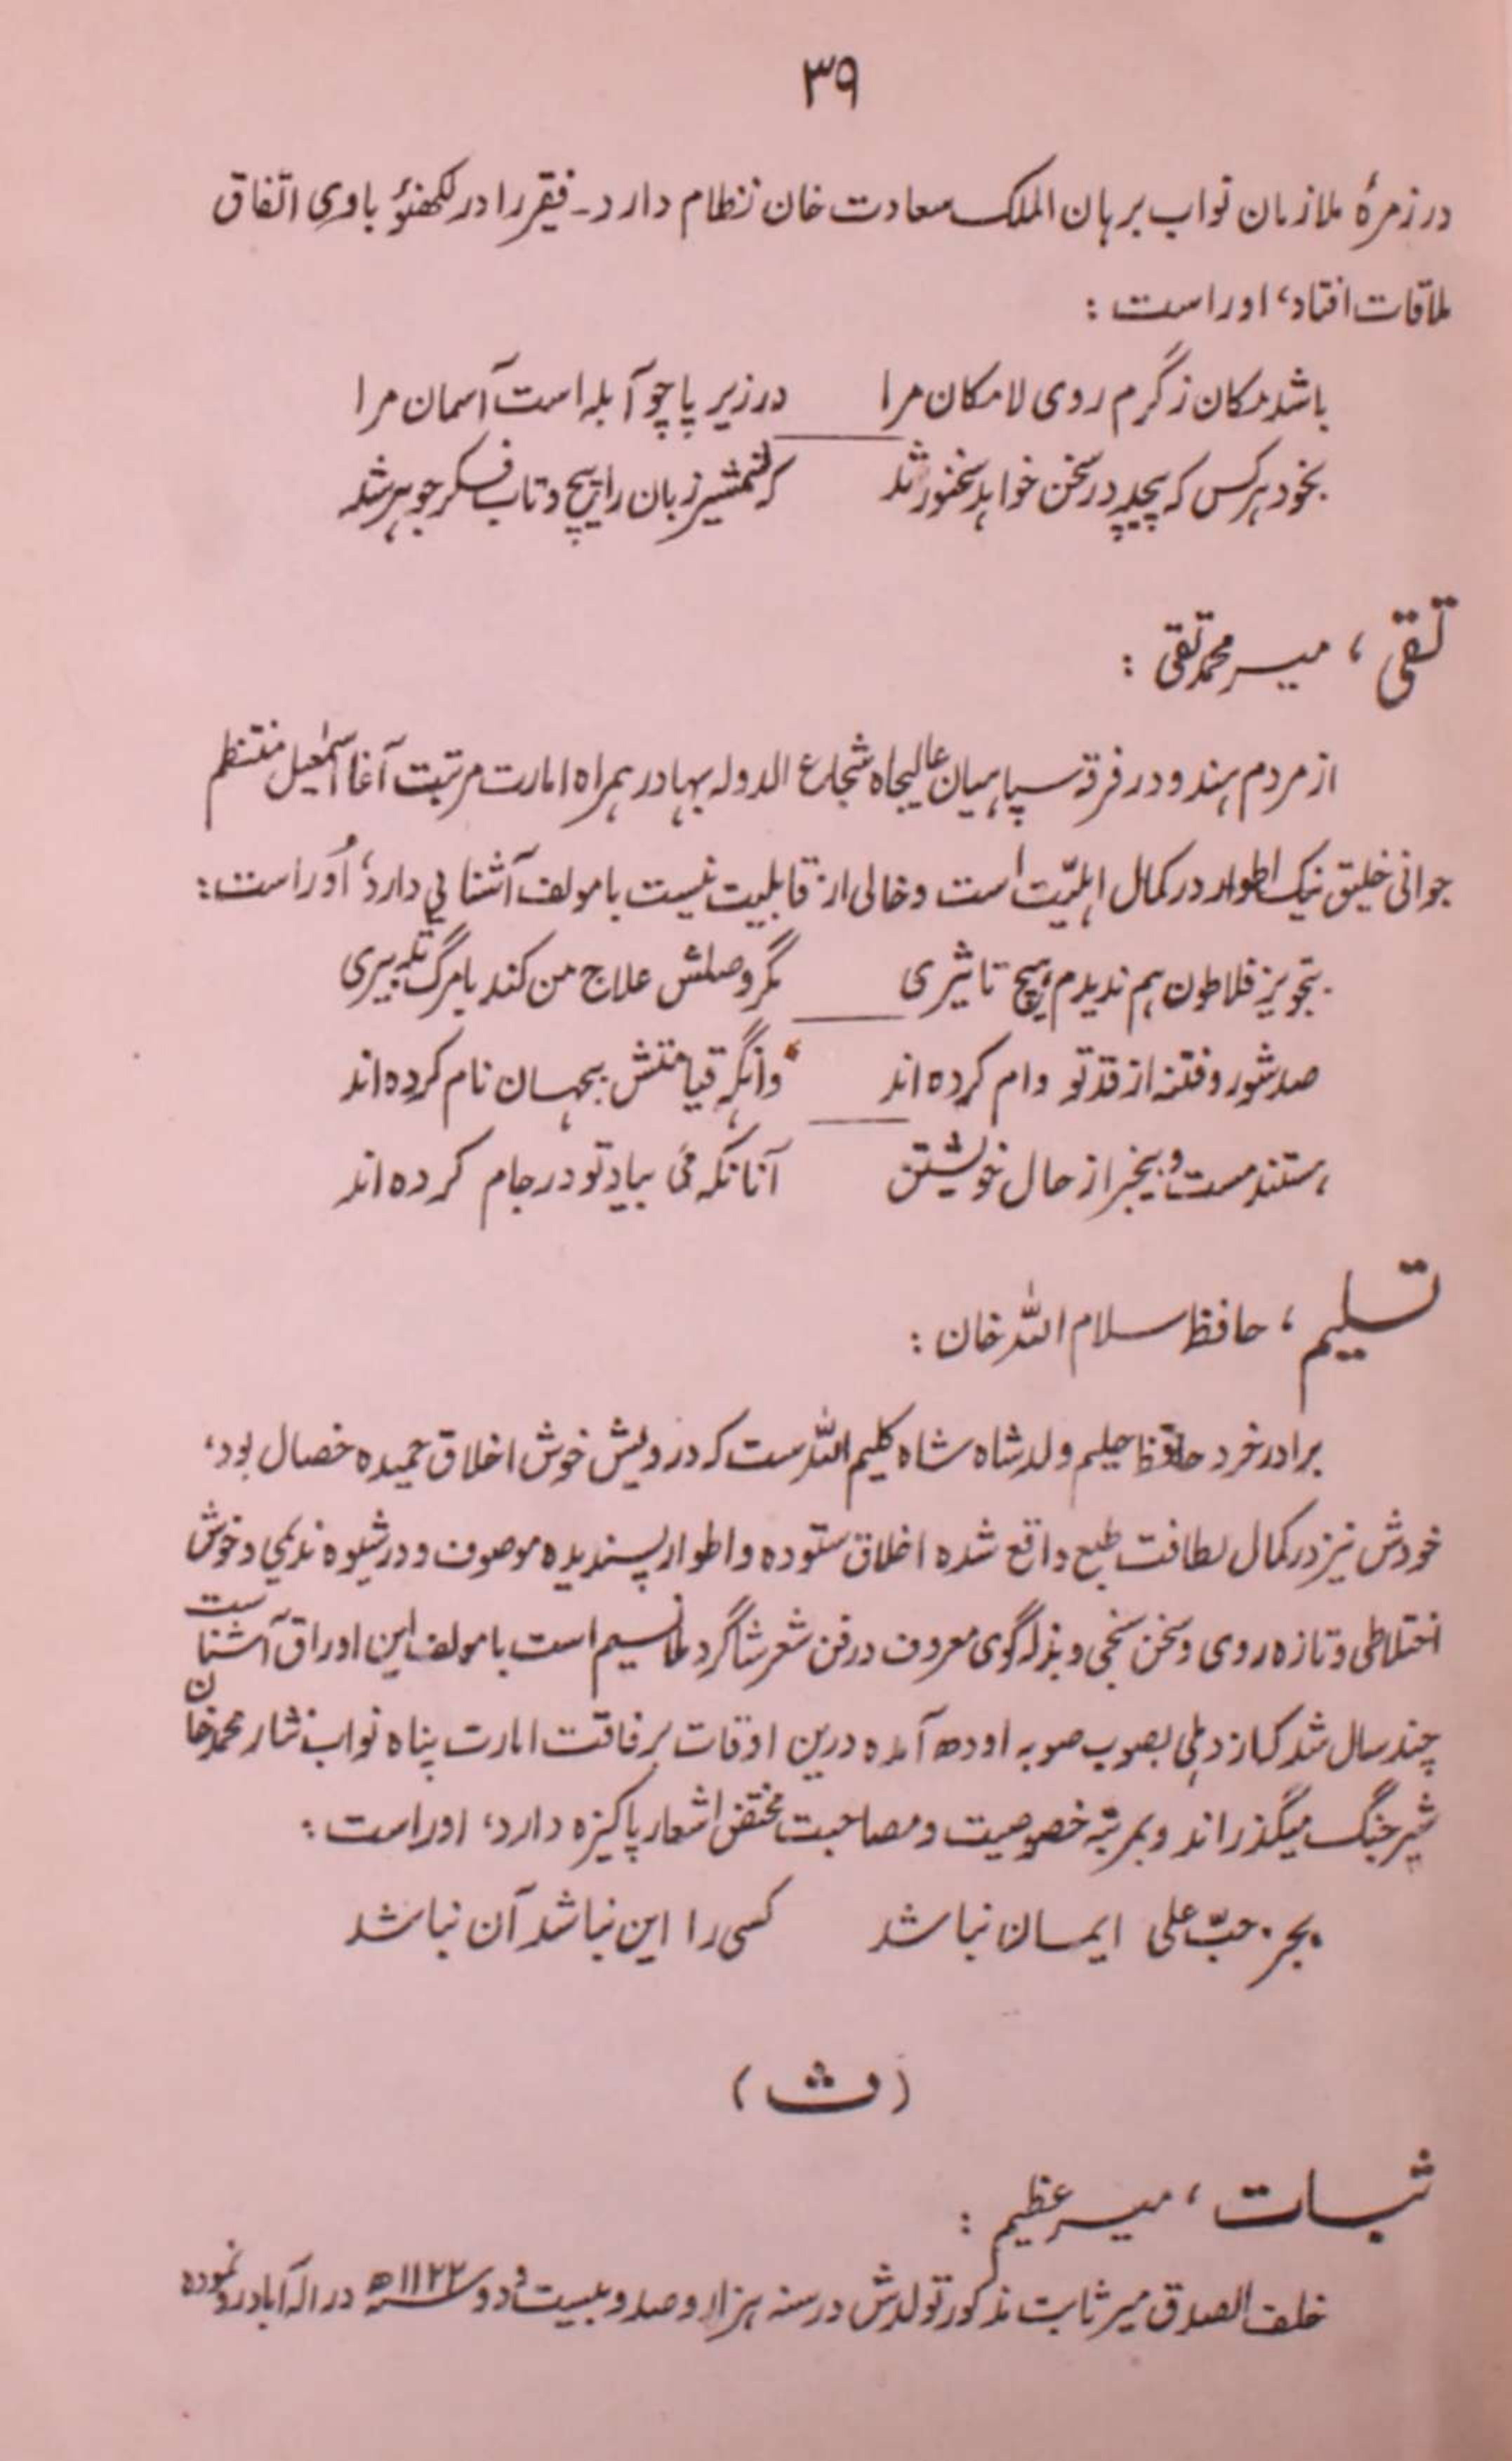 ۳۹
در زمرهٔ ملازمان نواب برہان الملک سعادت خان نظام دارد۔ فقیر را در لکھنؤ باوی اتفاق
ملاقات افتاد، اوراست :
باشد مکان ز گرم روی لامکان مرا در زیر پا چو آبلہ است آسمان مرا
بخود ہر کس کہ پیچید در سخن خواہد سخنور شد کہ شمشیر زبان را پیچ و تاب فکر جوہر شد
تقی ، میر محمد تقی :
از مردم ہند و در فرقہ سپاہیان عالیجاہ شجاع الدولہ بہادر ہمراہ امارت مرتبت آغا اسمٰعیل منتظم
جوانی خلیق نیک اطوار در کمال اہلیّت است و خالی از قابلیت نیست با مولف آشنائی دارد، اُوراست :
بتجویز فلاطون ہم ندیدم ہیچ تاثیری مگر وصلش علاج من کند یا مرگ تدبیری
صد شور و فتنہ از قد تو وام کردہ اند وانگہ قیامتش بجہان نام کردہ اند
ہستند مست و بیخبر از حال خویشتن آنانکہ می بیاد تو در جام کردہ اند
تسلیم ، حافظ سلام اللہ خان :
برادر خرد حافظ حلیم ولد شاہ شاہ کلیم اللہ ست کہ درویش خوش اخلاق حمیدہ خصال بود،
خودش نیز در کمال لطافت طبع واقع شدہ اخلاق ستودہ و اطوار پسندیدہ موصوف و در شیوہ ندیمی و خوش
اختلاطی و تازہ روی و سخن سنجی و بذلہ گوی معروف در فن شعر شاگرد ملا نسیم است با مولف این اوراق آشناست
چند سال شد کہ از دہلی بصوب صوبہ اودھ آمدہ درین اوقات برفاقت امارت پناہ نواب نثار محمد خان
شیر جنگ میگذراند و بمرتبہ خصوصیت و مصاحبت مختص اشعار پاکیزہ دارد، اوراست :
بجز حبّ علی ایمان نباشد کسی را این نباشد آن نباشد
(ث)
ثبات ، میر عظیم :
خلف الصدق میر ثابت مذکور تولدش در سنہ ہزار و صد و بیست و دو سنہ ۱۱۲۲ھ در الہ آباد رو نمودہ